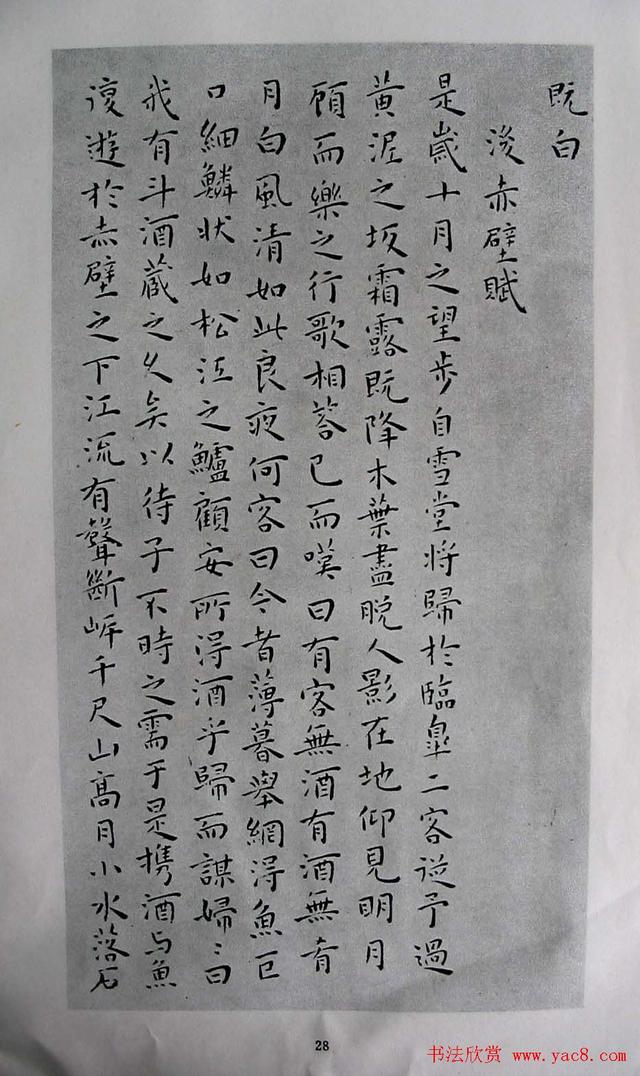 既白
後赤壁賦
是歲十月之望步自雪堂將歸於臨皋二客從予過
黃泥之坂霜露既降木葉盡脫人影在地仰見明月
顧而樂之行歌相答已而嘆曰有客無酒有酒無肴
月白風清如此良夜何客曰今者薄暮舉網得魚巨
口細鱗狀如松江之鱸顧安所得酒乎歸而謀婦〻曰
我有斗酒藏之久矣以待子不時之需于是攜酒与魚
復遊於赤壁之下江流有聲斷岸千尺山高月小水落石
28
书法欣赏 www.yac8.com